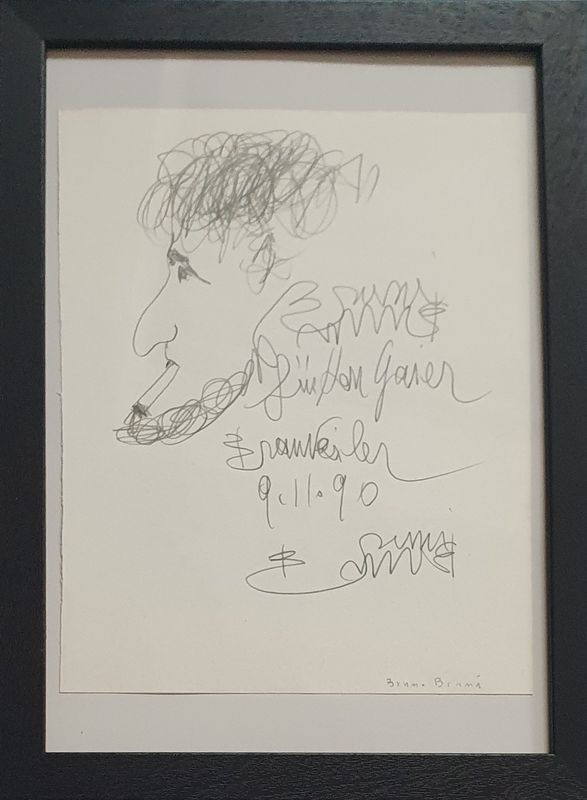 Bruni
Günter Gaier
Brauweiler
9.11.90
B Bruni
Bruno Bruni